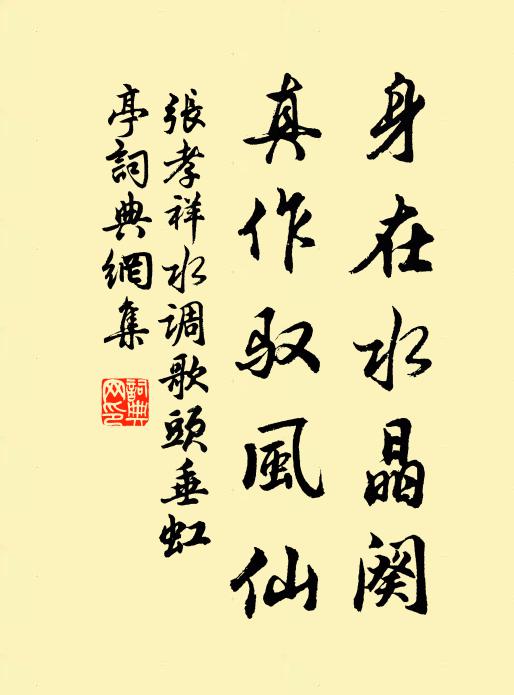 身在水晶阙
真作驭風仙
張孝祥水调歌頭垂虹
亭詞典網集
詞典
网印